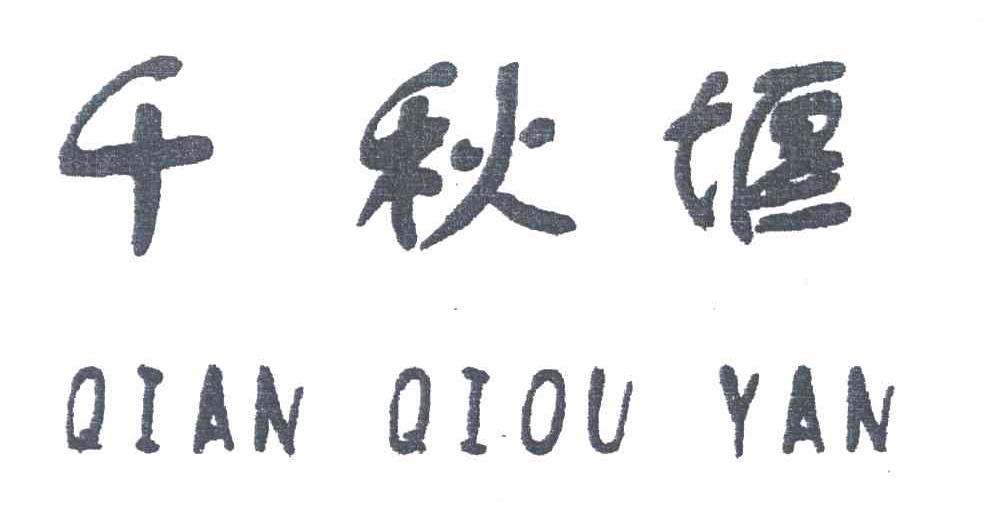 千秋堰
QIAN QIOU YAN